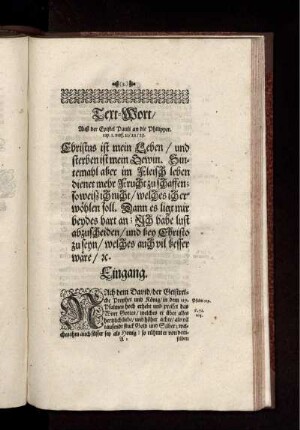 Text-Wort/
Auß der Epistel Pauli an die Philipper.
cap. 1. vers. 21/22/23.
Christus ist mein Leben / und
sterben ist mein Gewin. Sin-
temahl aber im Fleisch leben
dienet mehr Frucht zu schaffen:
so weiß ich nicht / welches ich er-
wöhlen soll. Dann es ligt mir
beydes hart an: Ich habe lust
abzuscheiden / und bey Christo
zu seyn / welches auch vil besser
wäre / ꝛc.
Eingang.
NAch dem David / der Geistrei-
che Prophet und König / in dem 119.
Psalmen hoch erhebt und preiset das
Wort Gottes / welches er über alles
hertzlich liebe / und höher achte / als vil
tausendt stuck Gold und Silber; wel-
ches ihm auch süsser sey als Honig: so rühmt er von dem-
selben